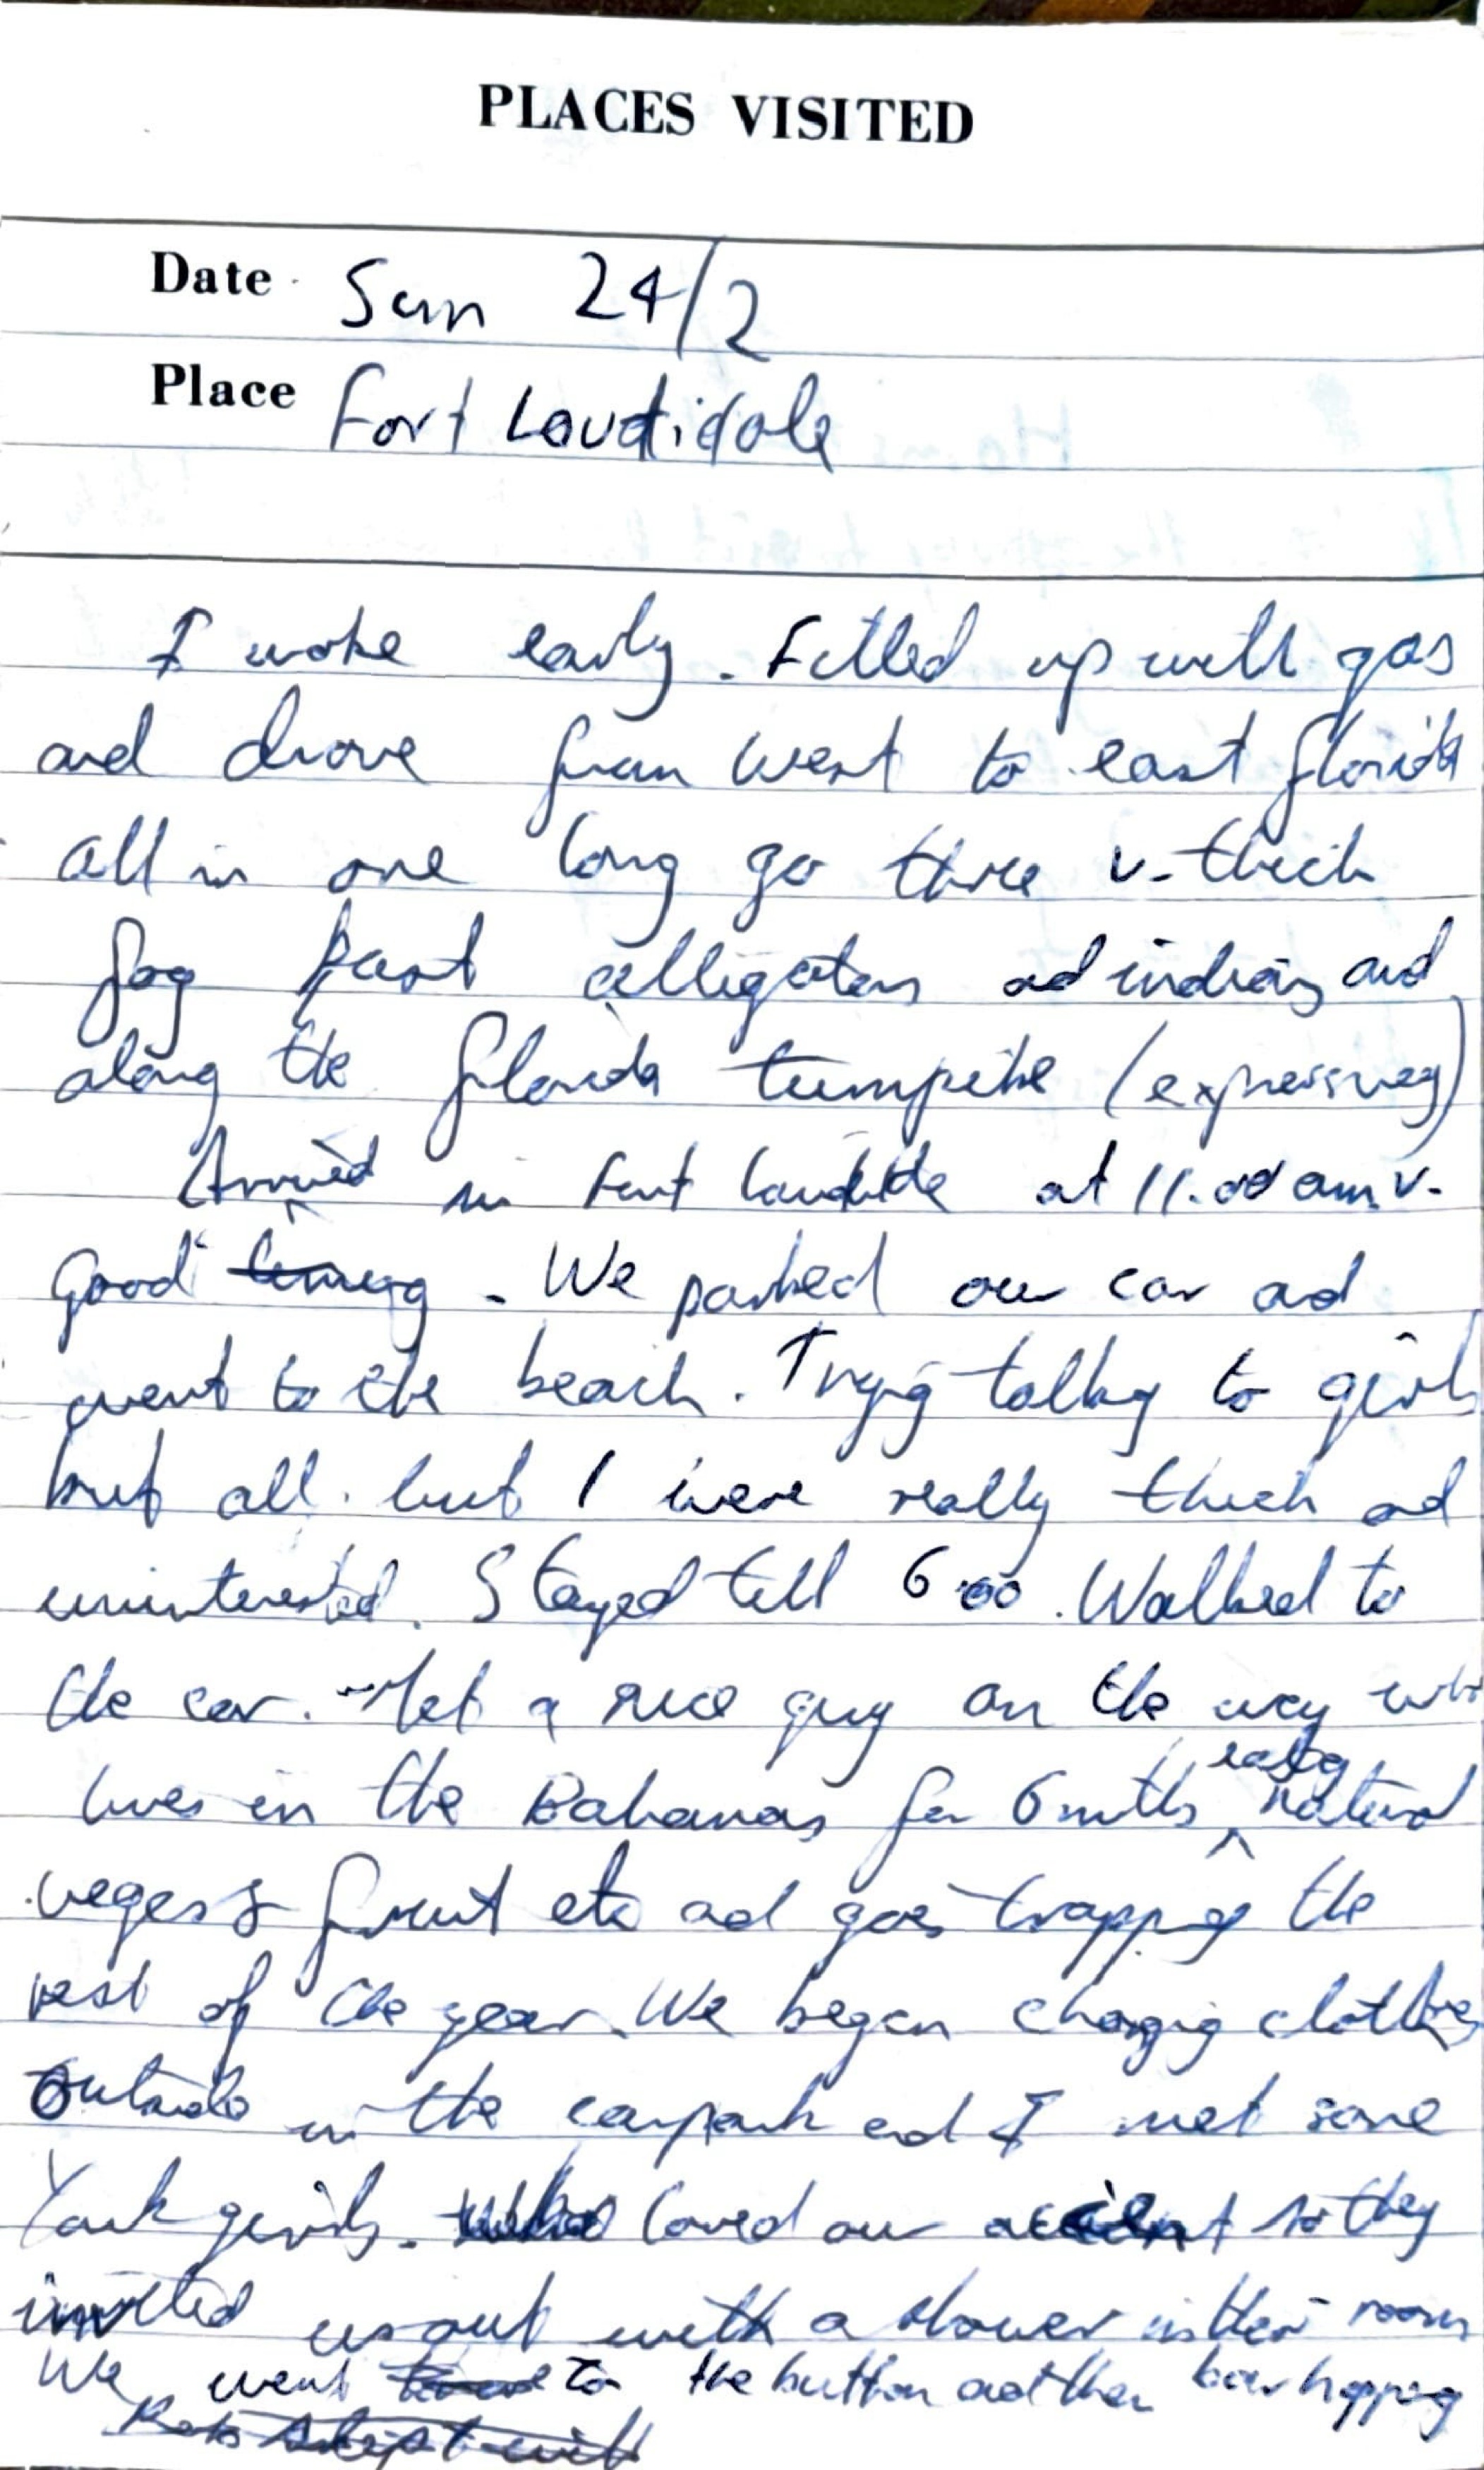 PLACES VISITED
Date Sun 24/2
Place Fort Laudidale
I woke early. Filled up with gas
and drove from West to east florida
all in one long go three v. thick
fog past alligators ad indians and
along the florida turnpike (expressway)
Arrived in Fort at 11.00 am v.
Good timing. We parked our car ad
went to the beach. Tryig talkg to girls
but all but I were really thick ad
uninterested. Stayed till 6.00. Walked to
the car. Met a nice guy on the way who
lives in the Bahamas for 6 mths eatig natural
veges & fruit etc ad goes trappig the
rest of the year. We began changig clothes
Outside in the carpark ad I met some
Yank girls. who loved our accent so they
invited us out with a shower in their room
We went to the button ad then bar hopping
slept with